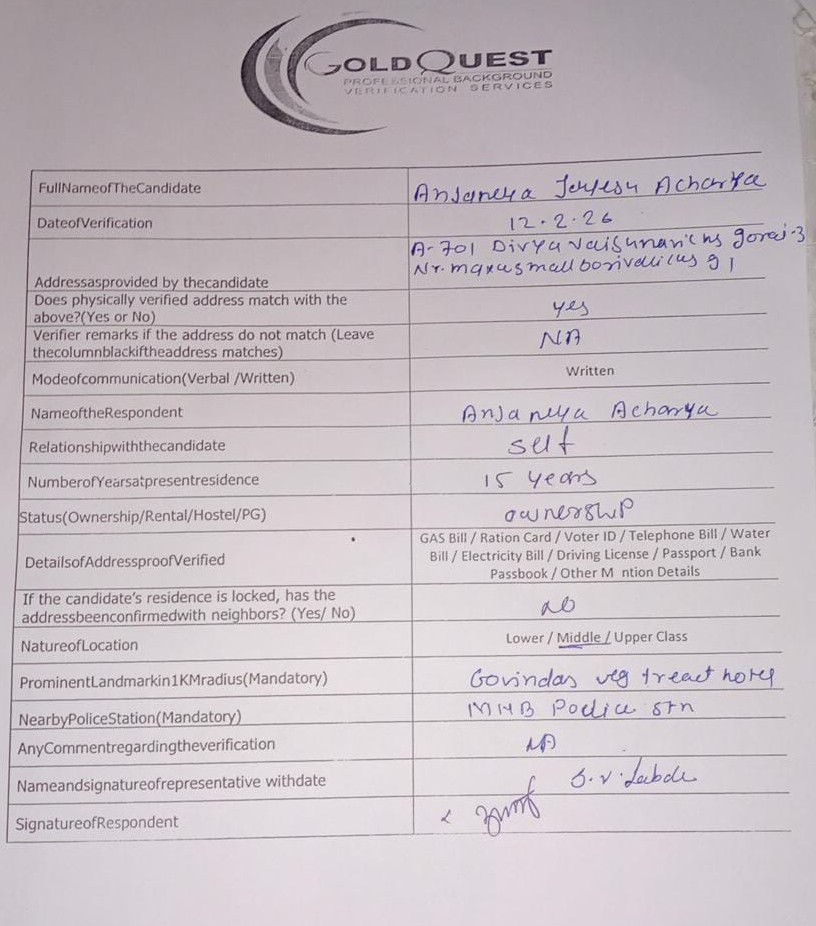 GOLDQUEST
PROFESSIONAL BACKGROUND
VERIFICATION SERVICES
FullNameofTheCandidate Anjaneya Acharya
DateofVerification 12.2.26
A-701 Divya gorai-3
Addressasprovided by thecandidate Nr. maxus mall borivali 91
Does physically verified address match with the
above?(Yes or No) yes
Verifier remarks if the address do not match (Leave
thecolumnblackiftheaddress matches) NA
Modeofcommunication(Verbal /Written) Written
NameoftheRespondent Anjaneya Acharya
Relationshipwiththecandidate self
NumberofYearsatpresentresidence 15 years
Status(Ownership/Rental/Hostel/PG) ownership
GAS Bill / Ration Card / Voter ID / Telephone Bill / Water
DetailsofAddressproofVerified Bill / Electricity Bill / Driving License / Passport / Bank
Passbook / Other M ntion Details
If the candidate's residence is locked, has the
addressbeenconfirmedwith neighbors? (Yes/ No) No
NatureofLocation Lower / Middle / Upper Class
ProminentLandmarkin1KMradius(Mandatory) Govindas veg treat hotel
NearbyPoliceStation(Mandatory) MHB Police stn
AnyCommentregardingtheverification NA
Nameandsignatureofrepresentative withdate S.V.
SignatureofRespondent